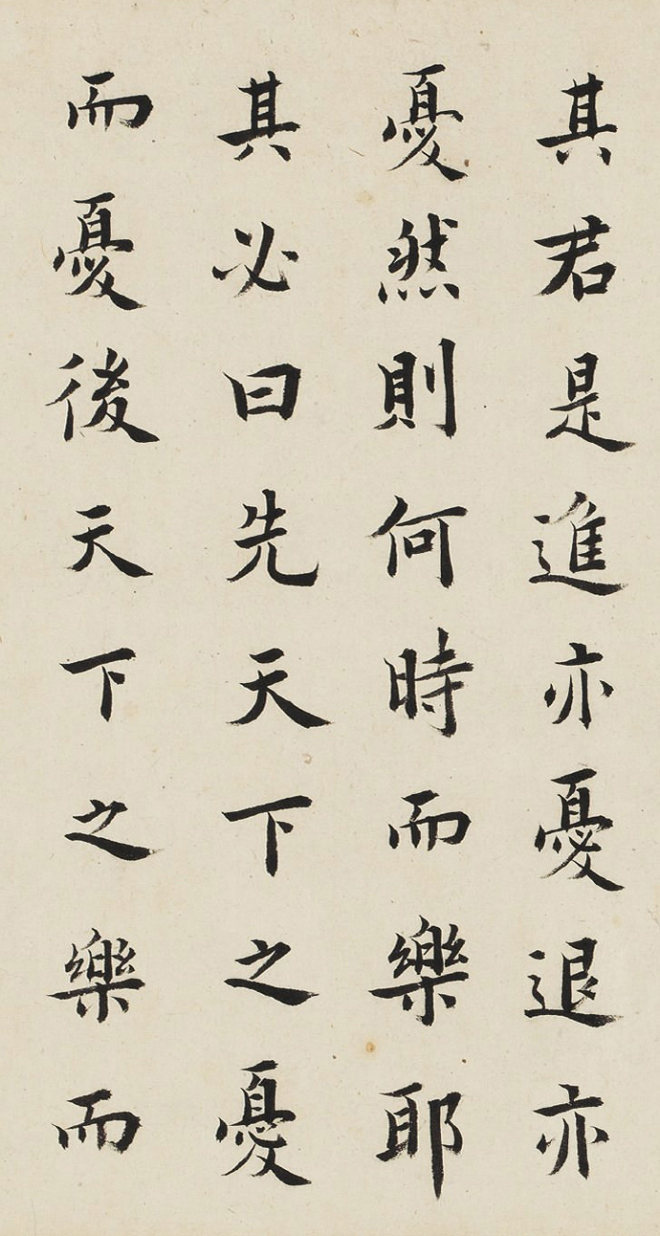 其君是進亦憂退亦
憂然則何時而樂耶
其必曰先天下之憂
而憂後天下之樂而